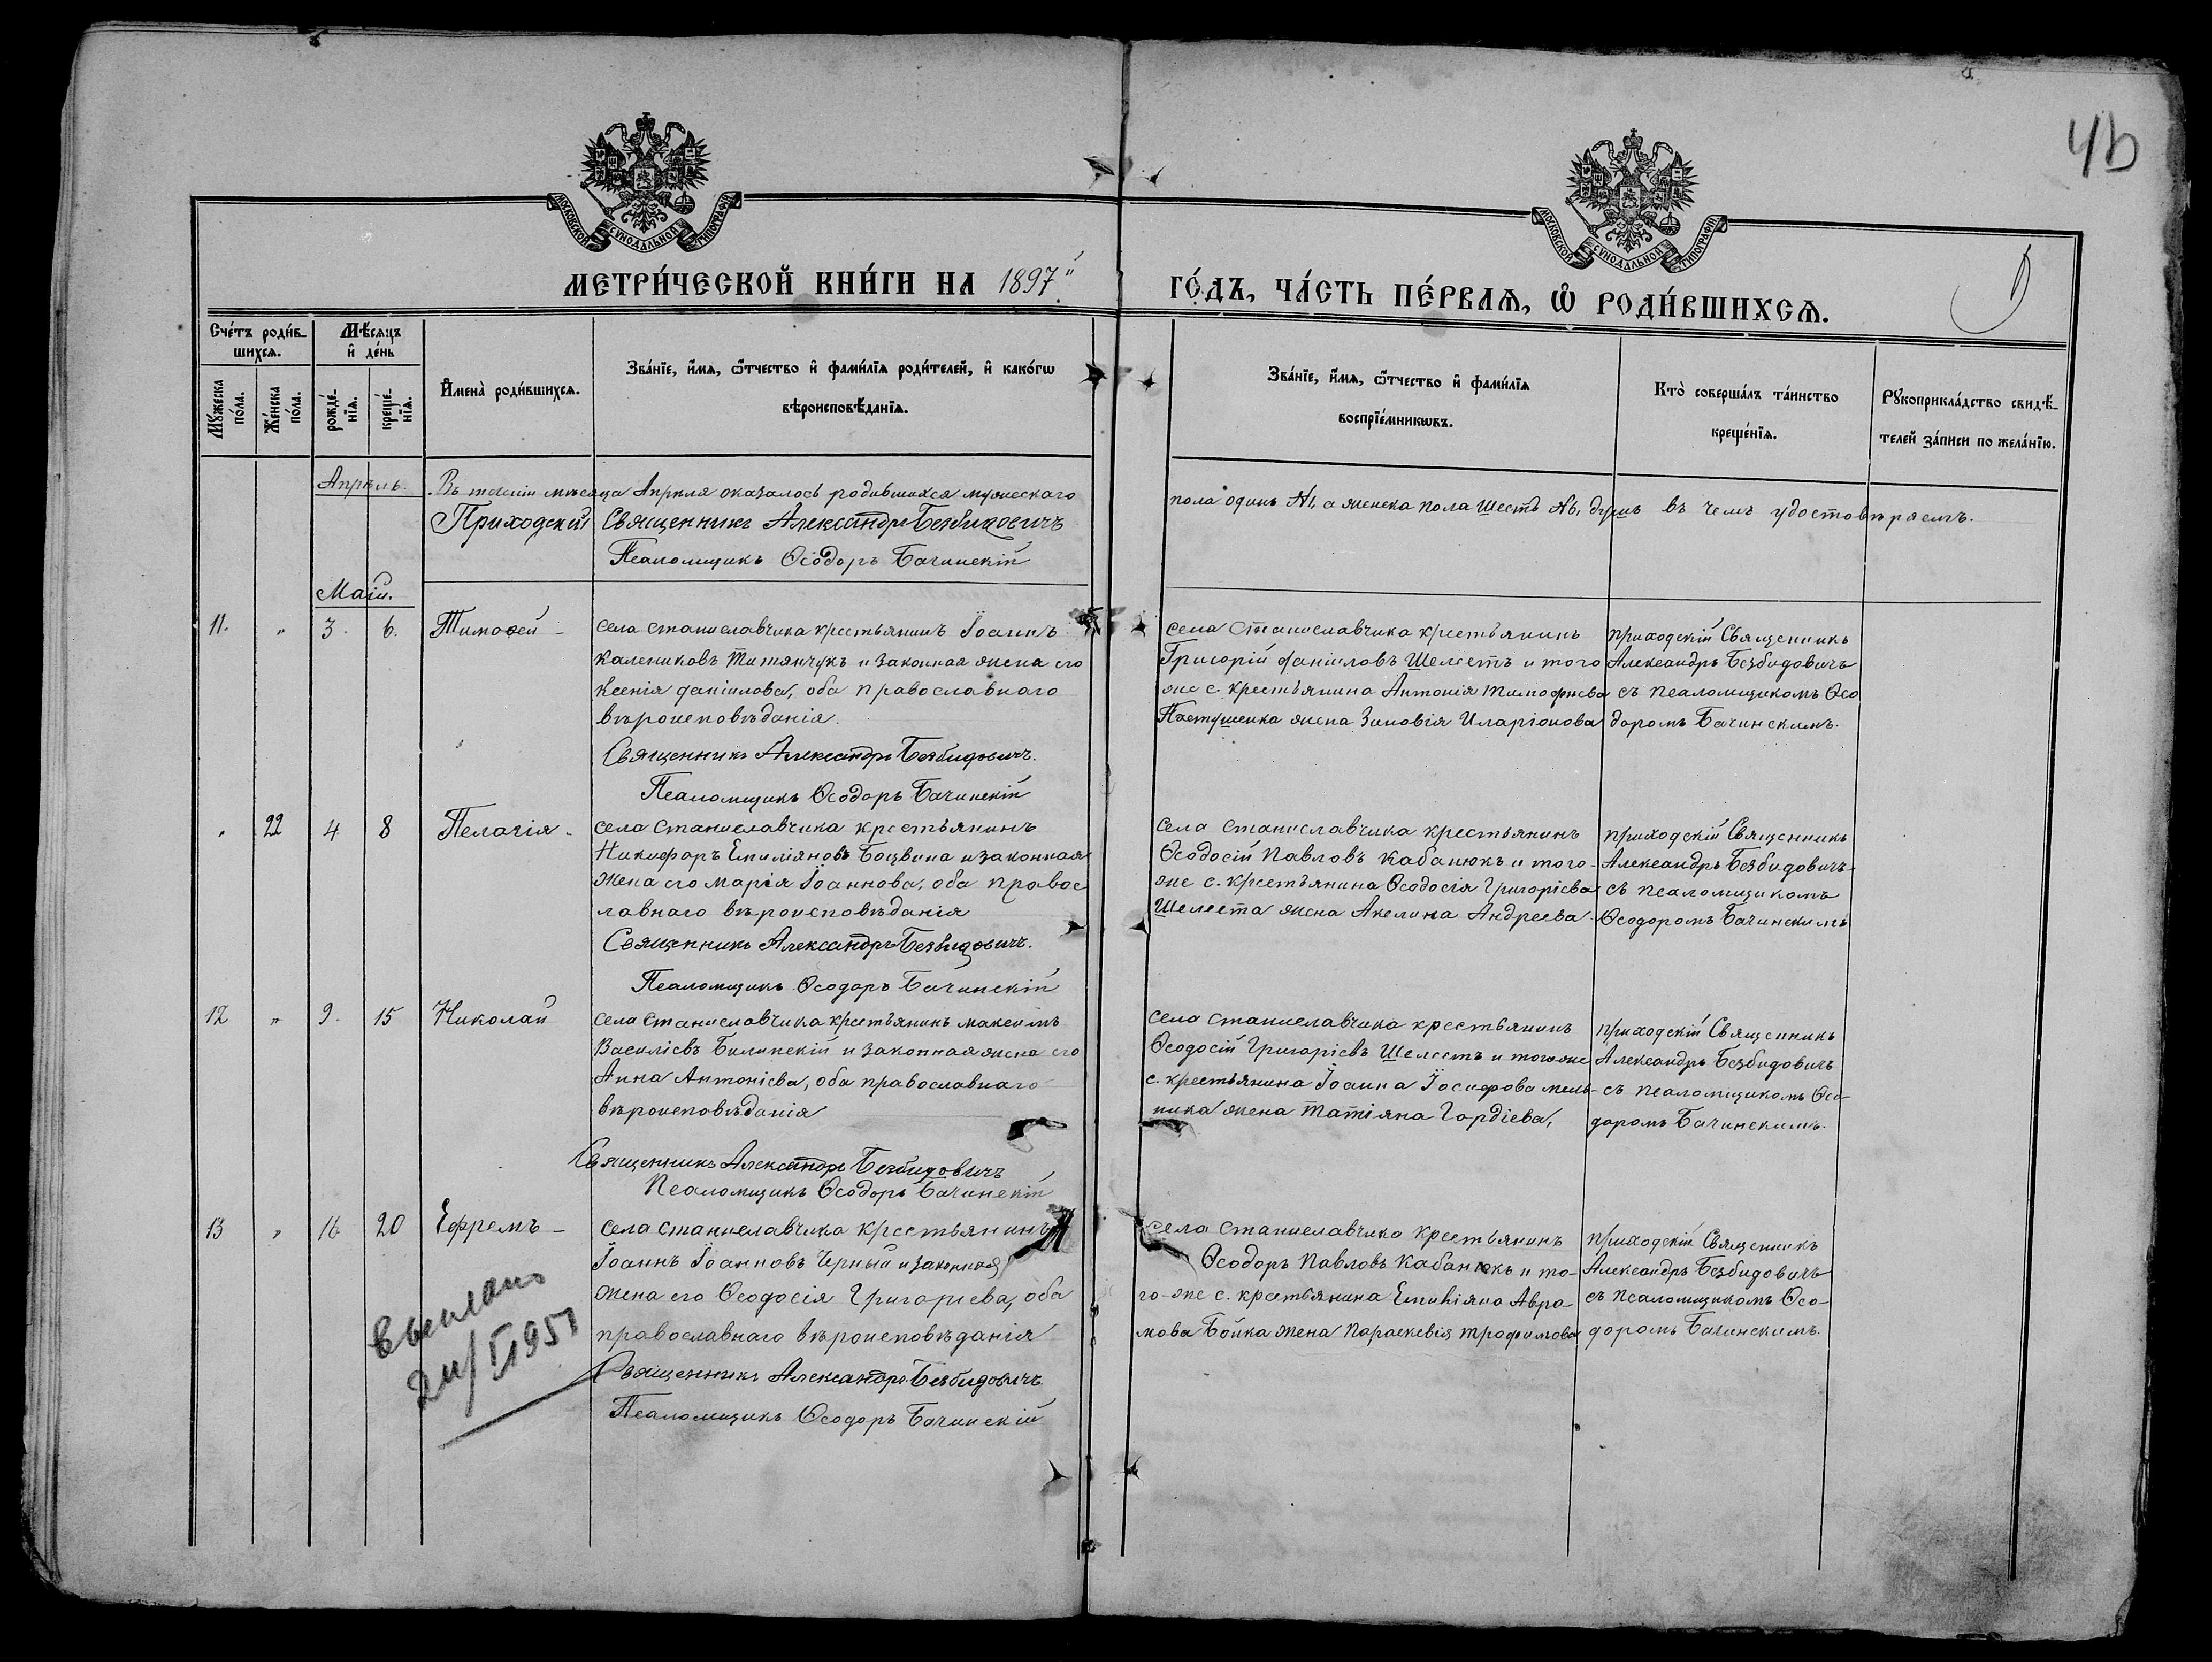 4b
МОСКОВСКОЙ СѴНОДАЛЬНОЙ ТИПОГРАФІИ
МОСКОВСКОЙ СѴНОДАЛЬНОЙ ТИПОГРАФІИ
МЕТРИ́ЧЕСКОЙ КНИ́ГИ НА 1897й ГО́ДЪ, ЧА́СТЬ ПЕ́РВАѦ, Ѡ РОДИ́ВШИХСѦ.
Сче́тъ роди́в-
шихсѧ.
Мѣ́сѧцъ
и҆ де́нь
Мꙋ́жеска по́ла.
Же́нска по́ла.
рожде́-
нїѧ.
креще́-
нїѧ.
И҆мена̀ роди́вшихсѧ.
Зва́нїе, и҆́мѧ, ѻ҆́тчество и҆ фами́лїѧ роди́телей, и҆ како́гѡ
вѣроисповѣ́данїѧ.
Зва́нїе, и҆́мѧ, ѻ҆́тчество и҆ фами́лїѧ
воспрїе́мникѡвъ.
Кто̀ соверша́лъ та́инство
креще́нїѧ.
Рꙋкоприкла́дство свидѣ́-
телей за́писи по жела́нїю.
Апрѣль.
Въ теченіи мѣсяца Апрѣля оказалось родившихся мужескаго
пола одинъ №1, а женска пола шесть №6, душъ въ чемъ удостовѣряемъ.
Приходскій Священникъ Александръ Безбидовичъ
Псаломщикъ Ѳеодоръ Бачинскій
Маій.
11. " 3. 6. Тимоѳей -
села Станиславчика крестьянинъ Іоаннъ
Калениковъ Титянчукъ и законная жена его
Ксенія Даніилова, оба православнаго
вѣроисповѣданія.
Священникъ Александръ Безбидовичъ.
Псаломщикъ Ѳеодоръ Бачинскій
села Станиславчика крестьянинъ
Григорій Даніиловъ Шелестъ и того
же с. крестьянина Антонія Тимофѣева
Пастушенка жена Зиновія Иларіонова
приходскій Священникъ
Александръ Безбидовичъ
съ псаломщикомъ Ѳео
доромъ Бачинскимъ.
" 22 4 8 Пелагія -
села Станиславчика крестьянинъ
Никифоръ Емиліяновъ Боцвина и законная
жена его Марія Іоаннова, оба правос
лавнаго вѣроисповѣданія
Священникъ Александръ Безбидовичъ.
Псаломщикъ Ѳеодоръ Бачинскій
села Станиславчика крестьянинъ
Ѳеодосій Павловъ Кабанюкъ и того-
же с. крестьянина Ѳеодосія Григоріева
Шелеста жена Акелина Андреева
приходскій Священникъ
Александръ Безбидовичъ
съ псаломщикомъ
Ѳеодоромъ Бачинскимъ
12 " 9. 15 Николай
села Станиславчика крестьянинъ Максимъ
Василіевъ Билинскій и законная жена его
Анна Антоніева, оба православнаго
вѣроисповѣданія
Священникъ Александръ Безбидовичъ
Псаломщикъ Ѳеодоръ Бачинскій
села Станиславчика крестьянинъ
Ѳеодосій Григоріевъ Шелестъ и тогоже
с. крестьянина Іоанна Іосифова Мель-
ника жена Татіяна Гордіева,
приходскій Священникъ
Александръ Безбидовичъ
съ псаломщикомъ Ѳео-
доромъ Бачинскимъ.
13 " 16 20 Ефремъ -
села Станиславчика крестьянинъ
Іоаннъ Іоанновъ Черный и законная
жена его Ѳеодосія Григорьева, оба
православнаго вѣроисповѣданія
Священникъ Александръ Безбидовичъ
Псаломщикъ Ѳеодоръ Бачинскій
села Станиславчика крестьянинъ
Ѳеодоръ Павловъ Кабанюкъ и то-
го-же с. крестьянина Емиліяна Авра
мова Бойка жена Параскевія Трофимова
приходскій Священникъ
Александръ Безбидовичъ
съ псаломщикомъ Ѳео-
доромъ Бачинскимъ.
выслано